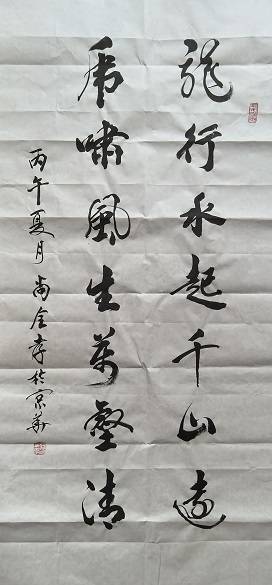 龍行水起千山遠
虎嘯風生萬壑清
丙午夏月尚全孝於京華